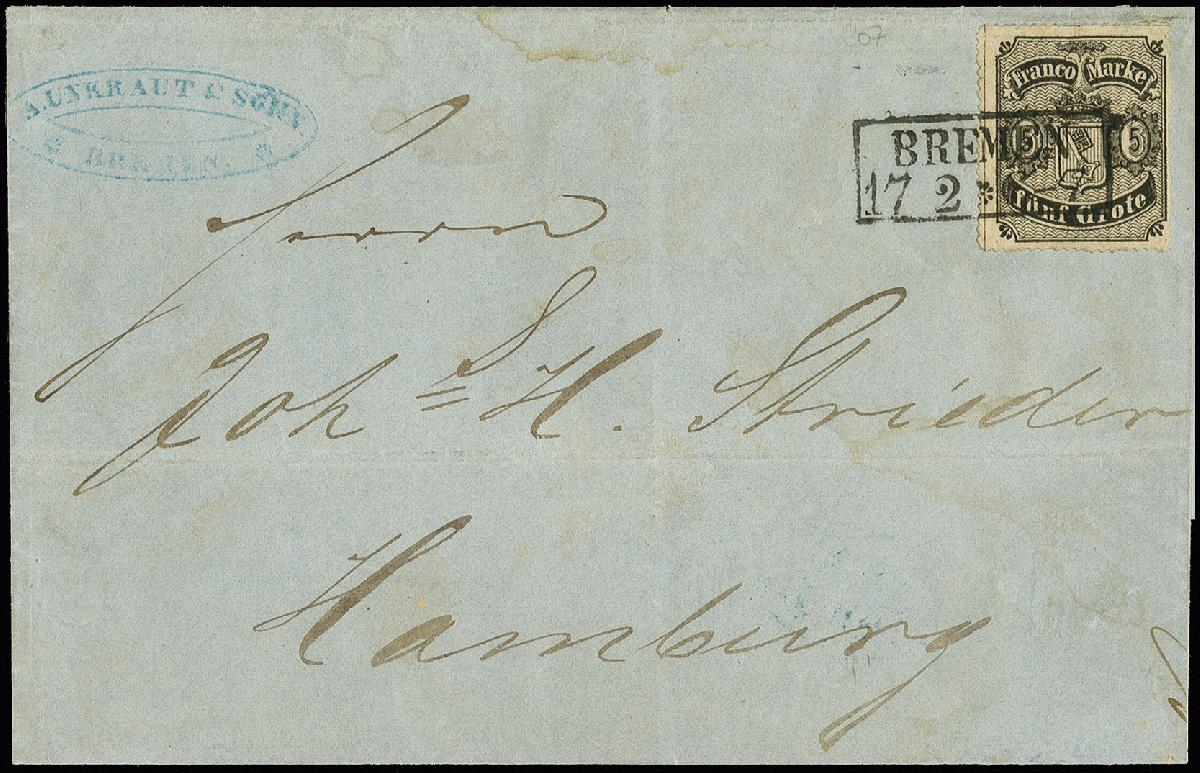 A. UNKRAUT & SOHN
BREMEN.
007
Franco Marke
BREMEN
5 5
17 2 *
fünf Grote
Herrn
Joh. H. Strieder
Hamburg